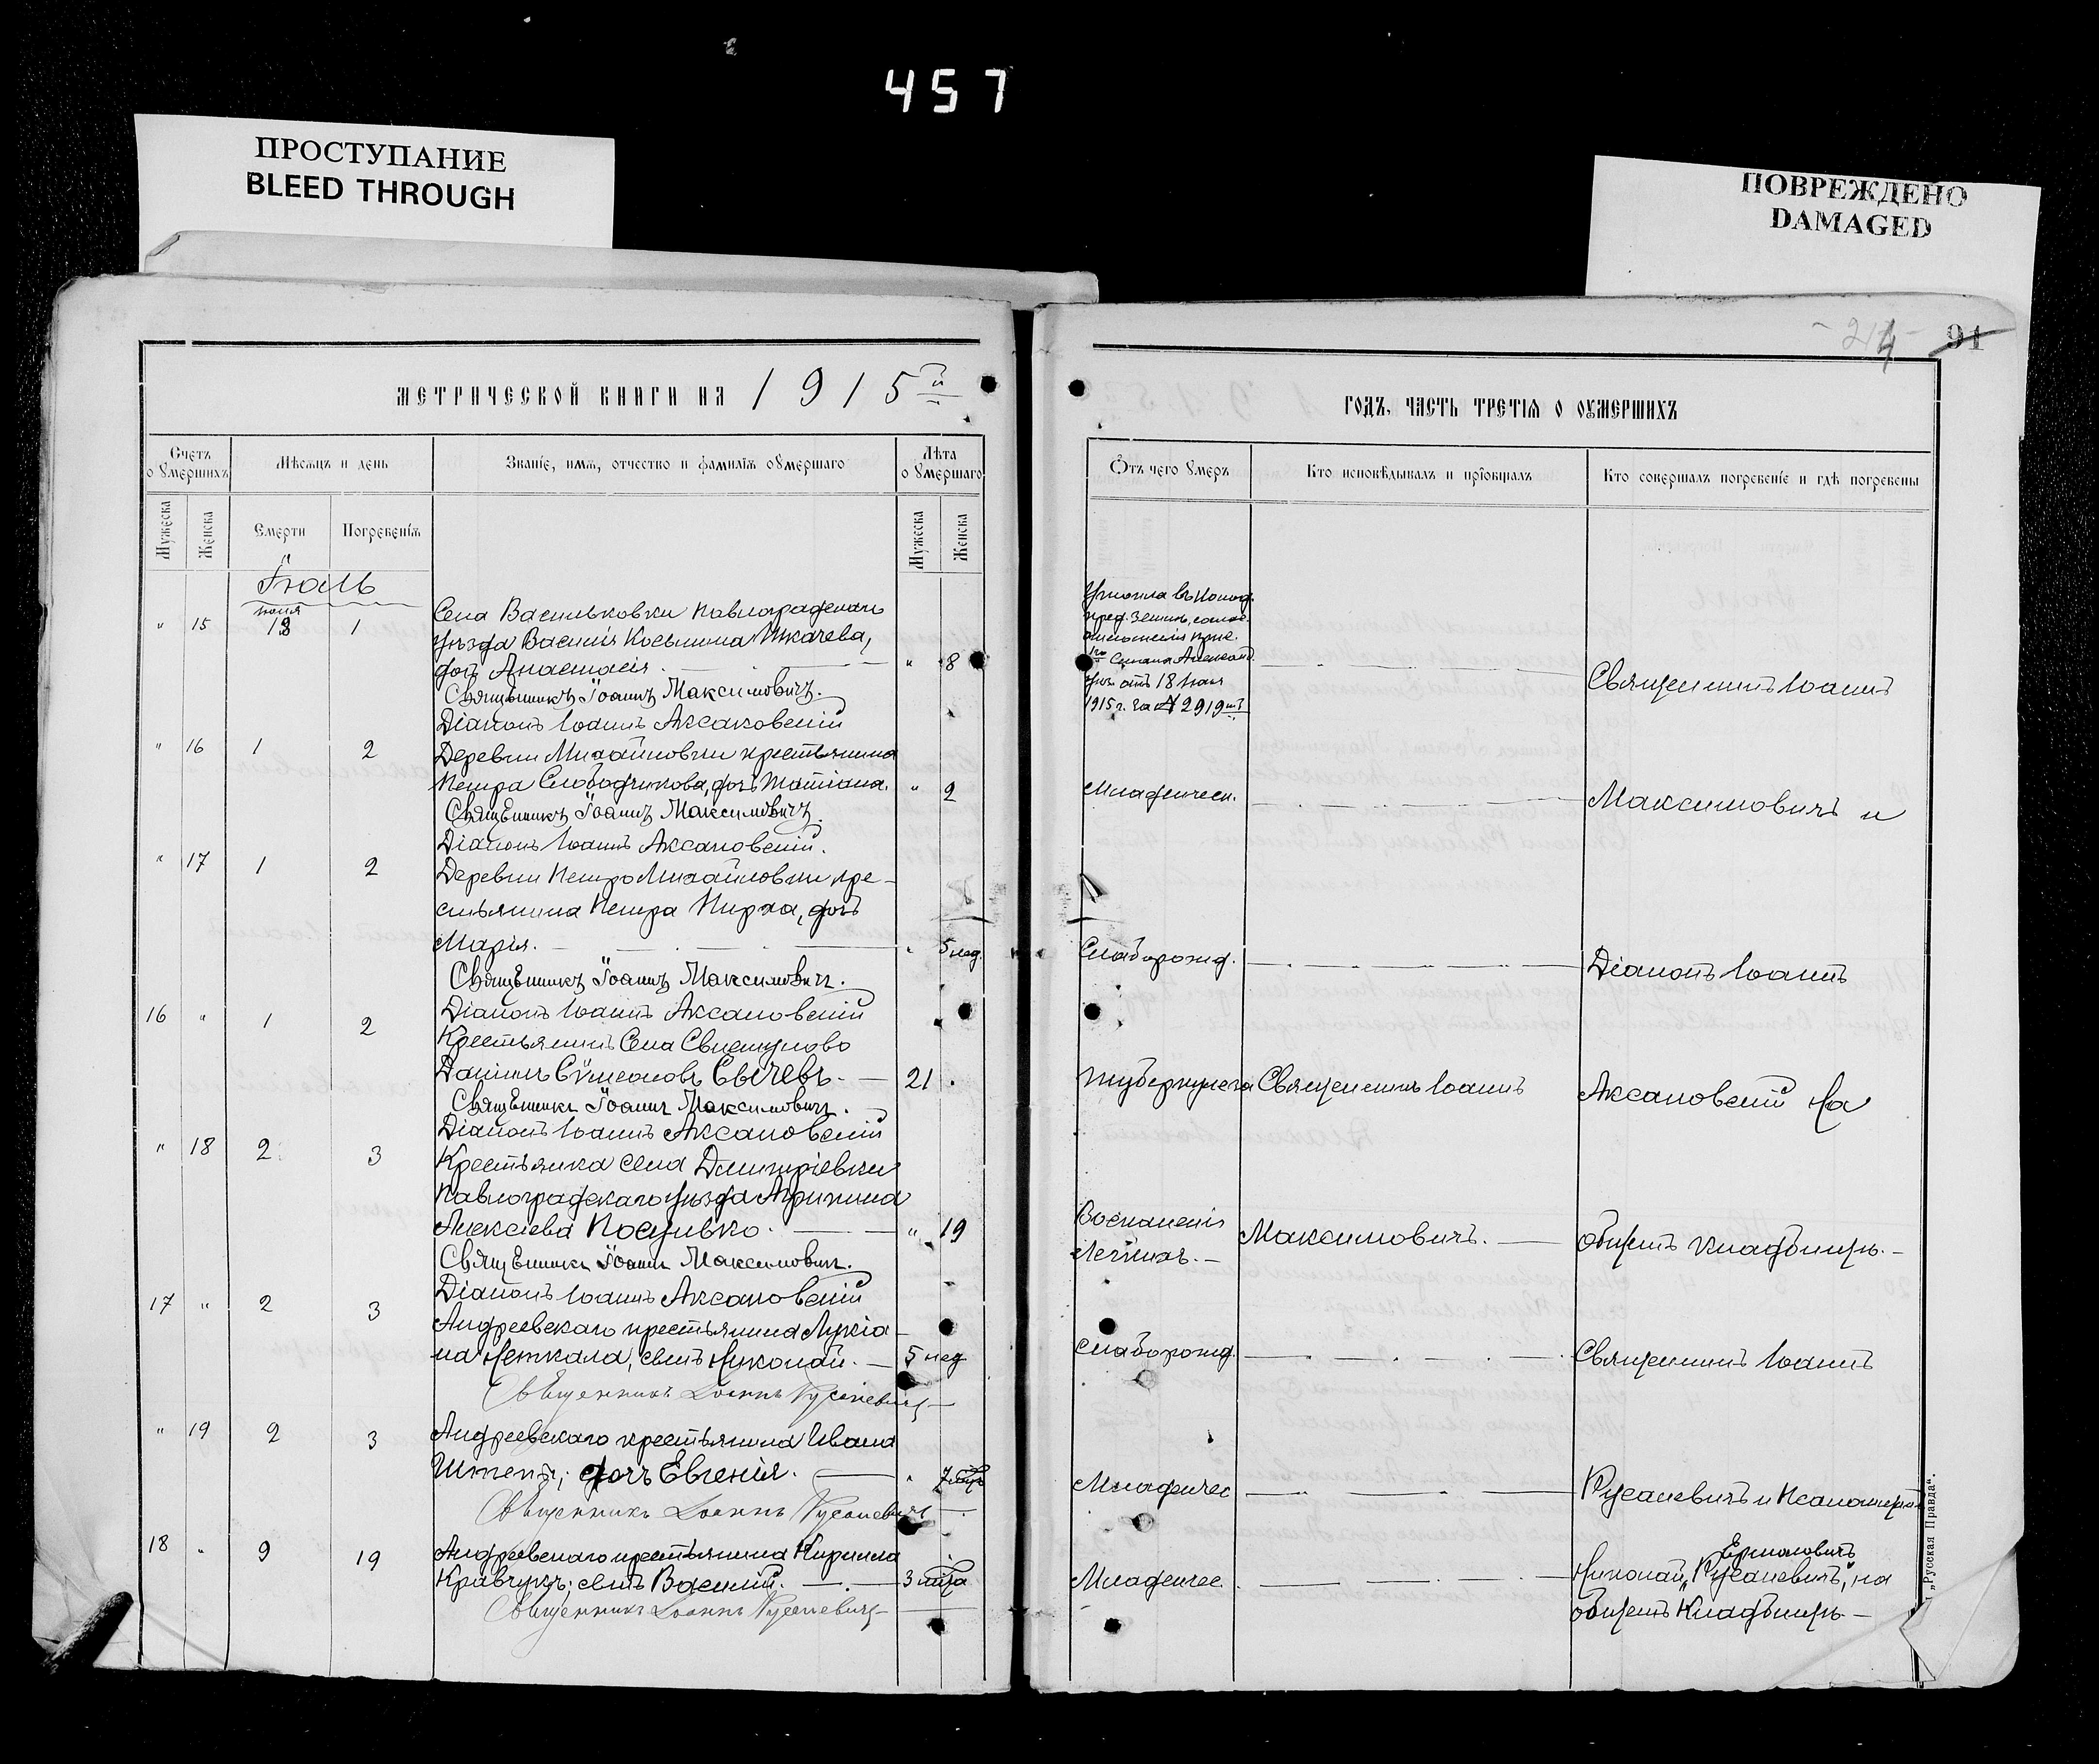 457
ПРОСТУПАНИЕ
BLEED THROUGH
ПОВРЕЖДЕНО
DAMAGED
214 91
метрической книги на 1915й
Счетъ оумершихъ
Мѣсяцъ и день
Званіе, имя, отчество и фамилія оумершаго
Лѣта оумершаго
Мужеска
Женска
Смерти
Погребенія
Мужеска
Женска
Іюль
іюня
" 15 18 1
Села Васильковки Павлоградскаго
уѣзда Василія Косьмина Ткачева,
дочь Анастасія. " 8
Священникъ Іоаннъ Максимовичъ.
Діаконъ Іоаннъ Аксаковскій
" 16 1 2
Деревни Михайловки крестьянина
Петра Слободчикова, дочь Татіана. " 2
Священникъ Іоаннъ Максимовичъ.
Діаконъ Іоаннъ Аксаковскій.
" 17 1 2
Деревни ПетроМихайловки кре-
стьянина Петра Пирха, дочь
Марія. " 5 нед.
Священникъ Іоаннъ Максимовичъ.
Діаконъ Іоаннъ Аксаковскій
16 " 1 2
Крестьянинъ Села Свистуново
Даніилъ Сѵмеоновъ Сычевъ. 21 "
Священникъ Іоаннъ Максимовичъ.
Діаконъ Іоаннъ Аксаковскій
" 18 2 3
Крестьянка села Димитріевки
Павлоградскаго уѣзда Агрипина
Алексіева Косушко. " 19
Священникъ Іоаннъ Максимовичъ.
Діаконъ Іоаннъ Аксаковскій
17 " 2 3
Андреевскаго крестьянина Лукіа-
на Неткала, сынъ Николай. 5 нед
Священникъ Іоаннъ Русаневичъ
" 19 2 3
Андреевскаго крестьянина Ивана
Штепы, дочь Евгенія. "
Священникъ Іоаннъ Русаневичъ
18 " 9 19
Андреевскаго крестьянина Кирилла
Кравчукъ; сынъ Василій. 3
Священникъ Іоаннъ Русаневичъ
годъ, часть третія о оумершихъ
Отъ чего умеръ
Кто исповѣдывалъ и пріобщалъ
Кто совершалъ погребеніе и гдѣ погребены
Утонла въ колод.
отношенія
Александ.
отъ 18
1915 г. за № 2919
Священникъ Іоаннъ
Младенческ.
Максимовичъ и
Слаборожд.
Діаконъ Іоаннъ
Туберкулеза
Священникъ Іоаннъ
Аксаковскій На
Воспаленія
Легкихъ.
Максимовичъ.
общемъ кладбищѣ.
слаборожд.
Священникъ Іоаннъ
Младенчес
Русаневичъ и Псаломщикъ
Младенчес.
Ермоловичъ
Николай "Русаневичъ", на
общемъ Кладбищѣ
„Русская Правда“.